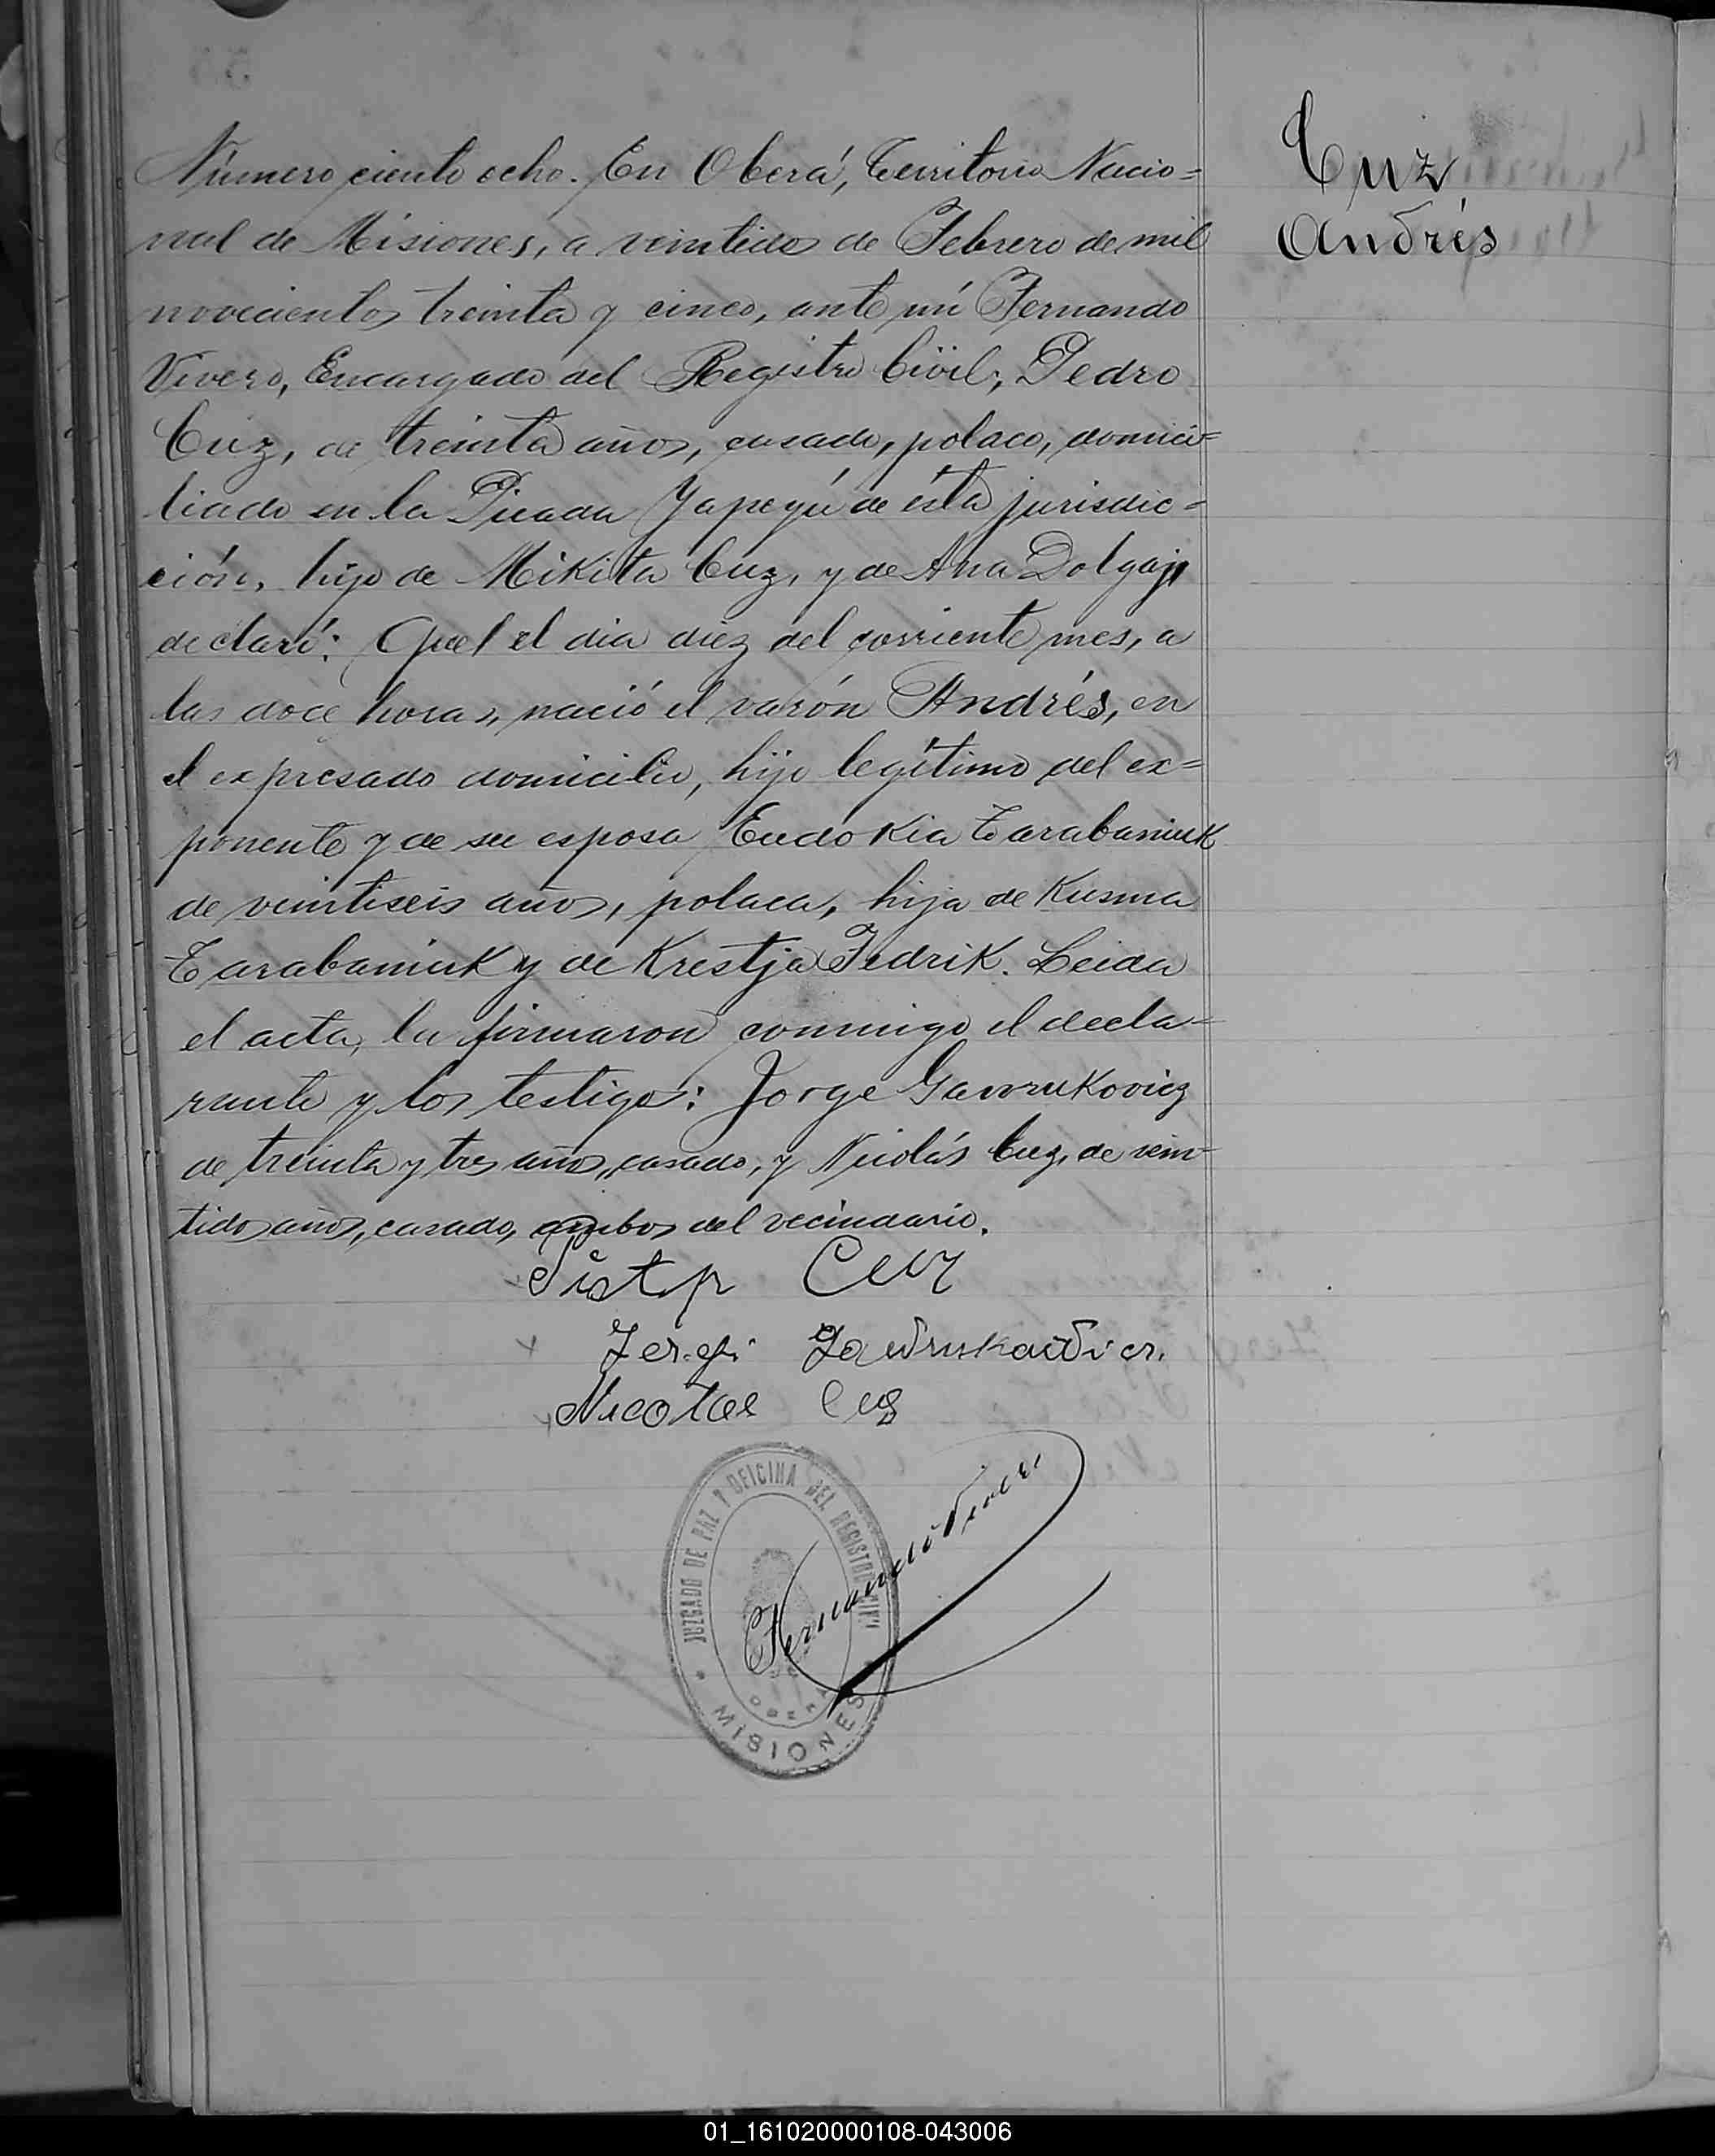 Cuz
Andrés
Número ciento ocho. En Oberá, Territorio Nacio=
nal de Misiones, a veintidos de Febrero de mil
novecientos treinta y cinco, ante mí Fernando
Vivero, Encargado del Registro Civil; Pedro
Cuz, de treinta años, casado, polaco, domici=
liado en la Picada Yapeyú de ésta jurisdic=
ción, hijo de Mikita Cuz, y de Ana Dolgaj,
declaró: Que el dia diez del corriente mes, a
las doce horas, nació el varón Andrés, en
el expresado domicilio, hijo legítimo del ex=
ponente y de su esposa Eudokia Tarabaniuk
de veintiseis años, polaca, hija de Kusma
Tarabaniuk y de Krestja Fedrik. Leida
el acta, la firmaron conmigo el decla-
rante y los testigos: Jorge Gawrukovicz
de treinta y tres años, casado, y Nicolás Cuz, de vein-
tidos años, casado, ambos del vecindario.
Cuz
Nicolae Cuz
JUZGADO DE PAZ Y OFICINA DEL REGISTRO CIVIL
Fernando Vivero
OBERA
MISIONES
01_161020000108-043006